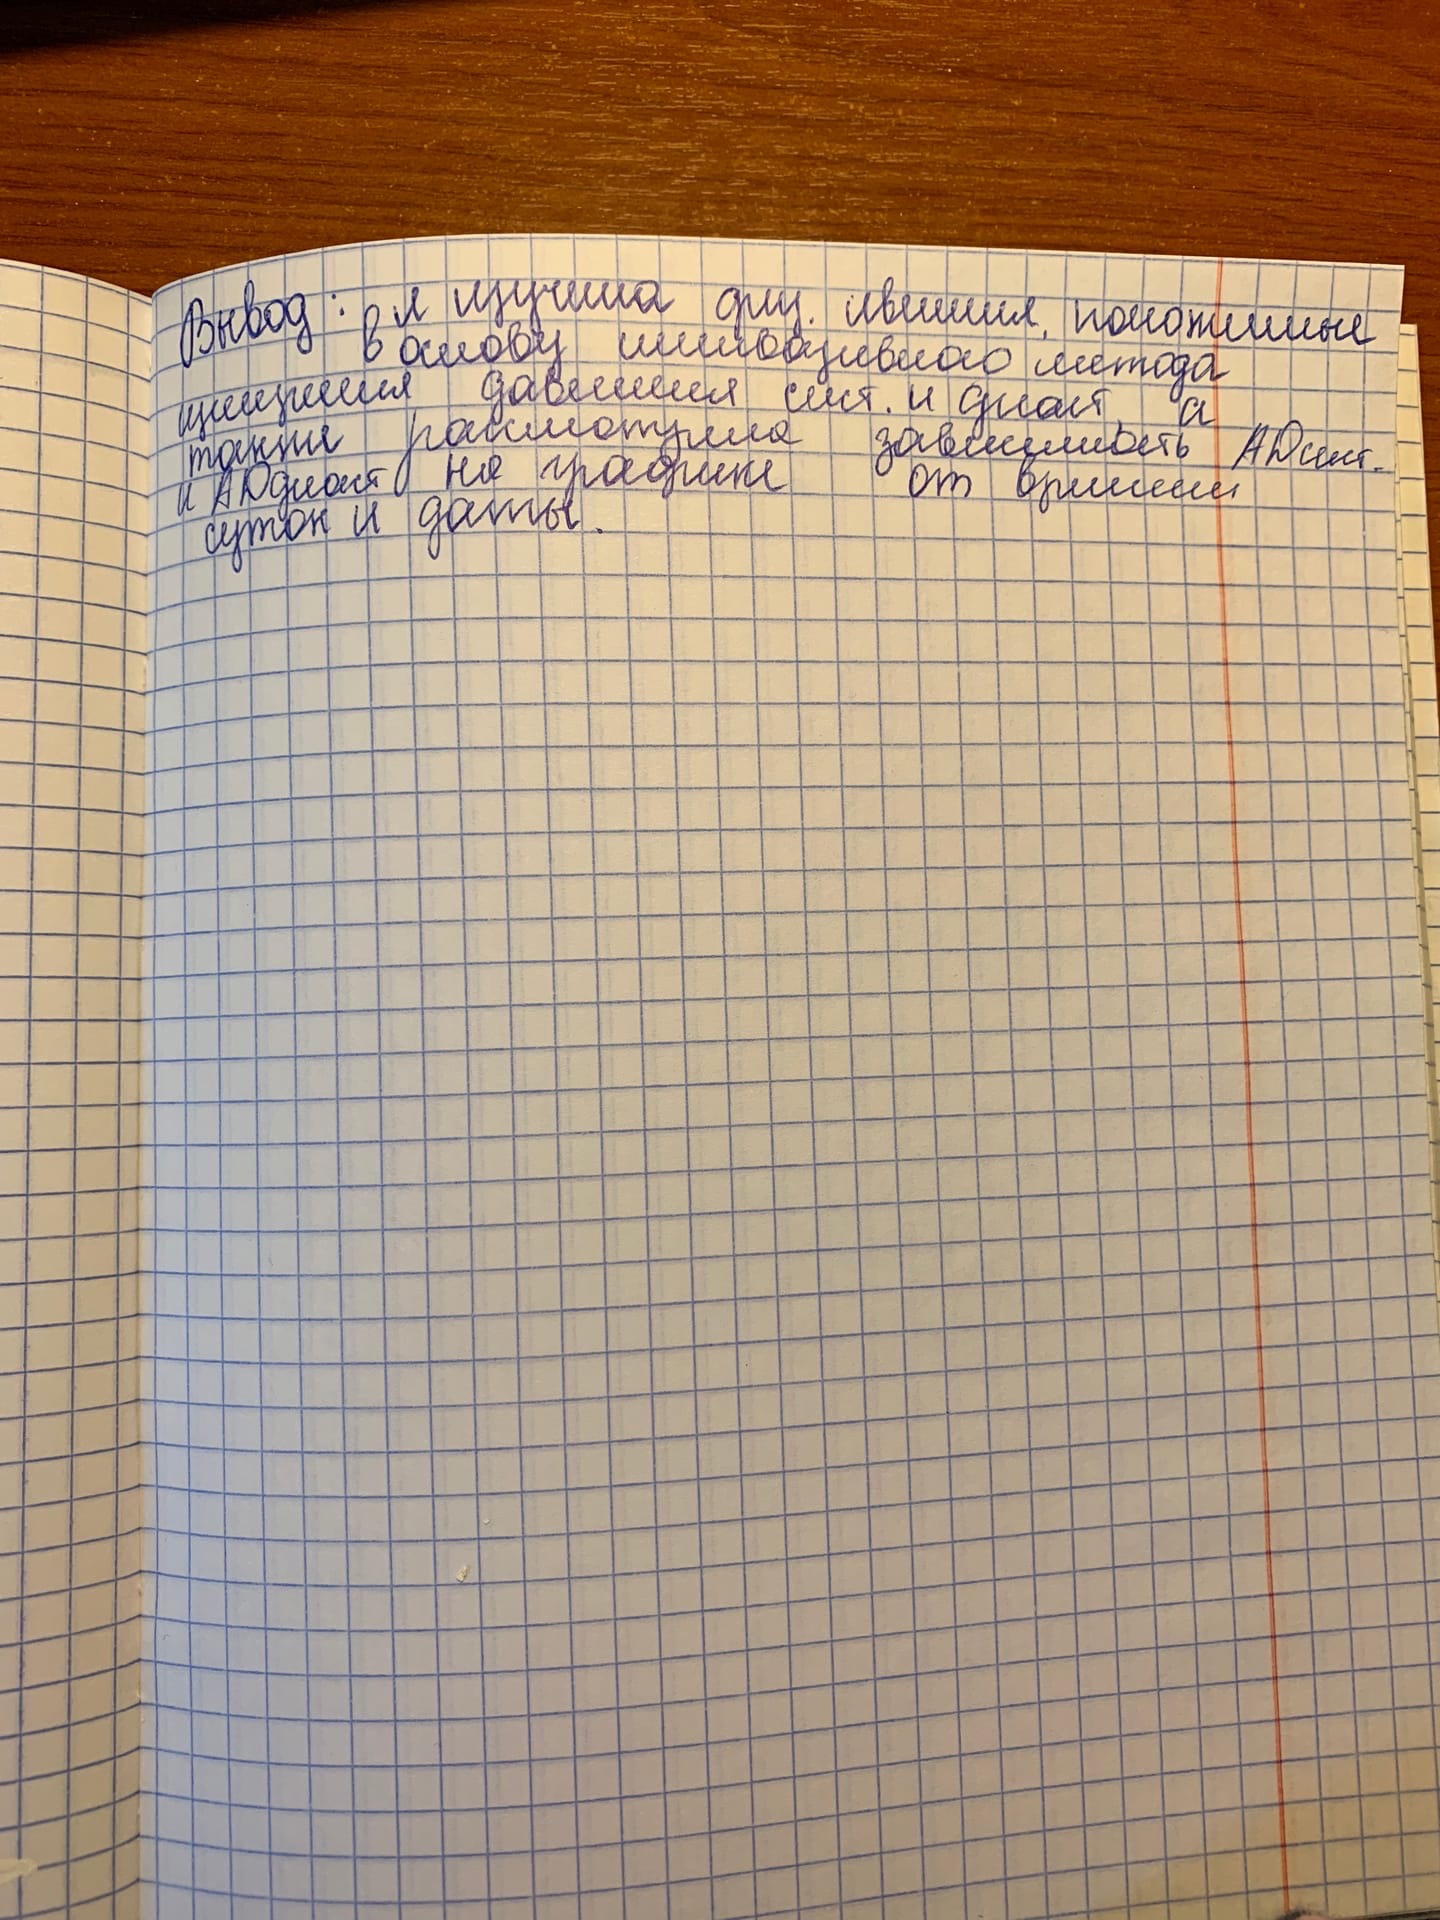 Вывод: я изучила физ. явления, положенные
в основу неинвазивного метода
измерения давления сист. и диаст, а
также рассмотрела зависимость АДсист.
и АДдиаст на графике от времени
суток и даты.